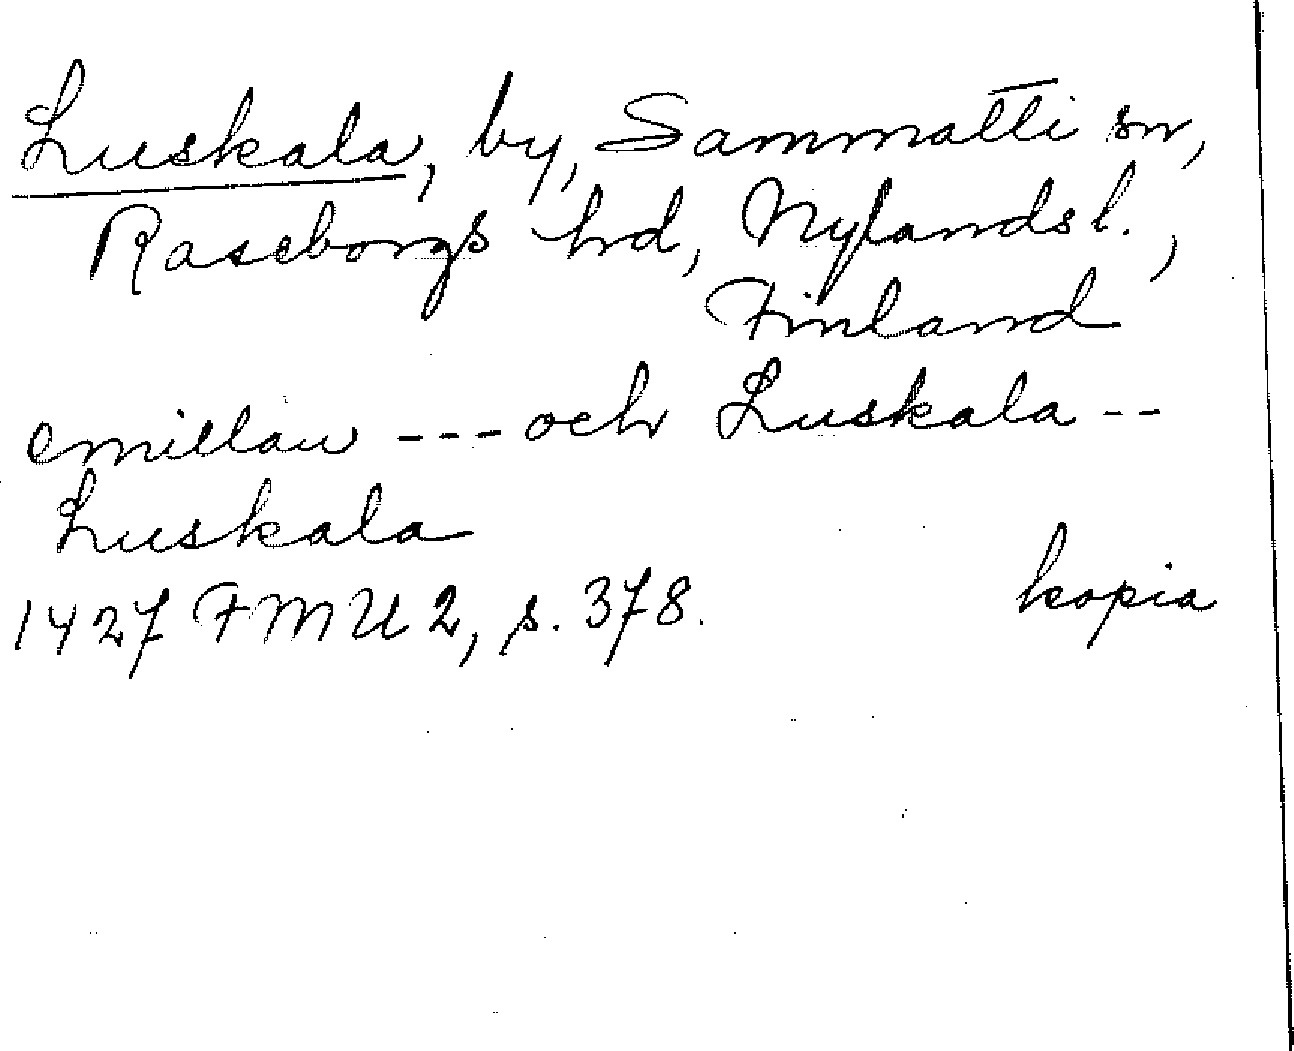 Luskala, by, Sammatti sn,
Raseborgs hd, Nylands l.,
Finland
emillan --- och Luskala --
Luskala
1427 FMU 2, s. 378. kopia